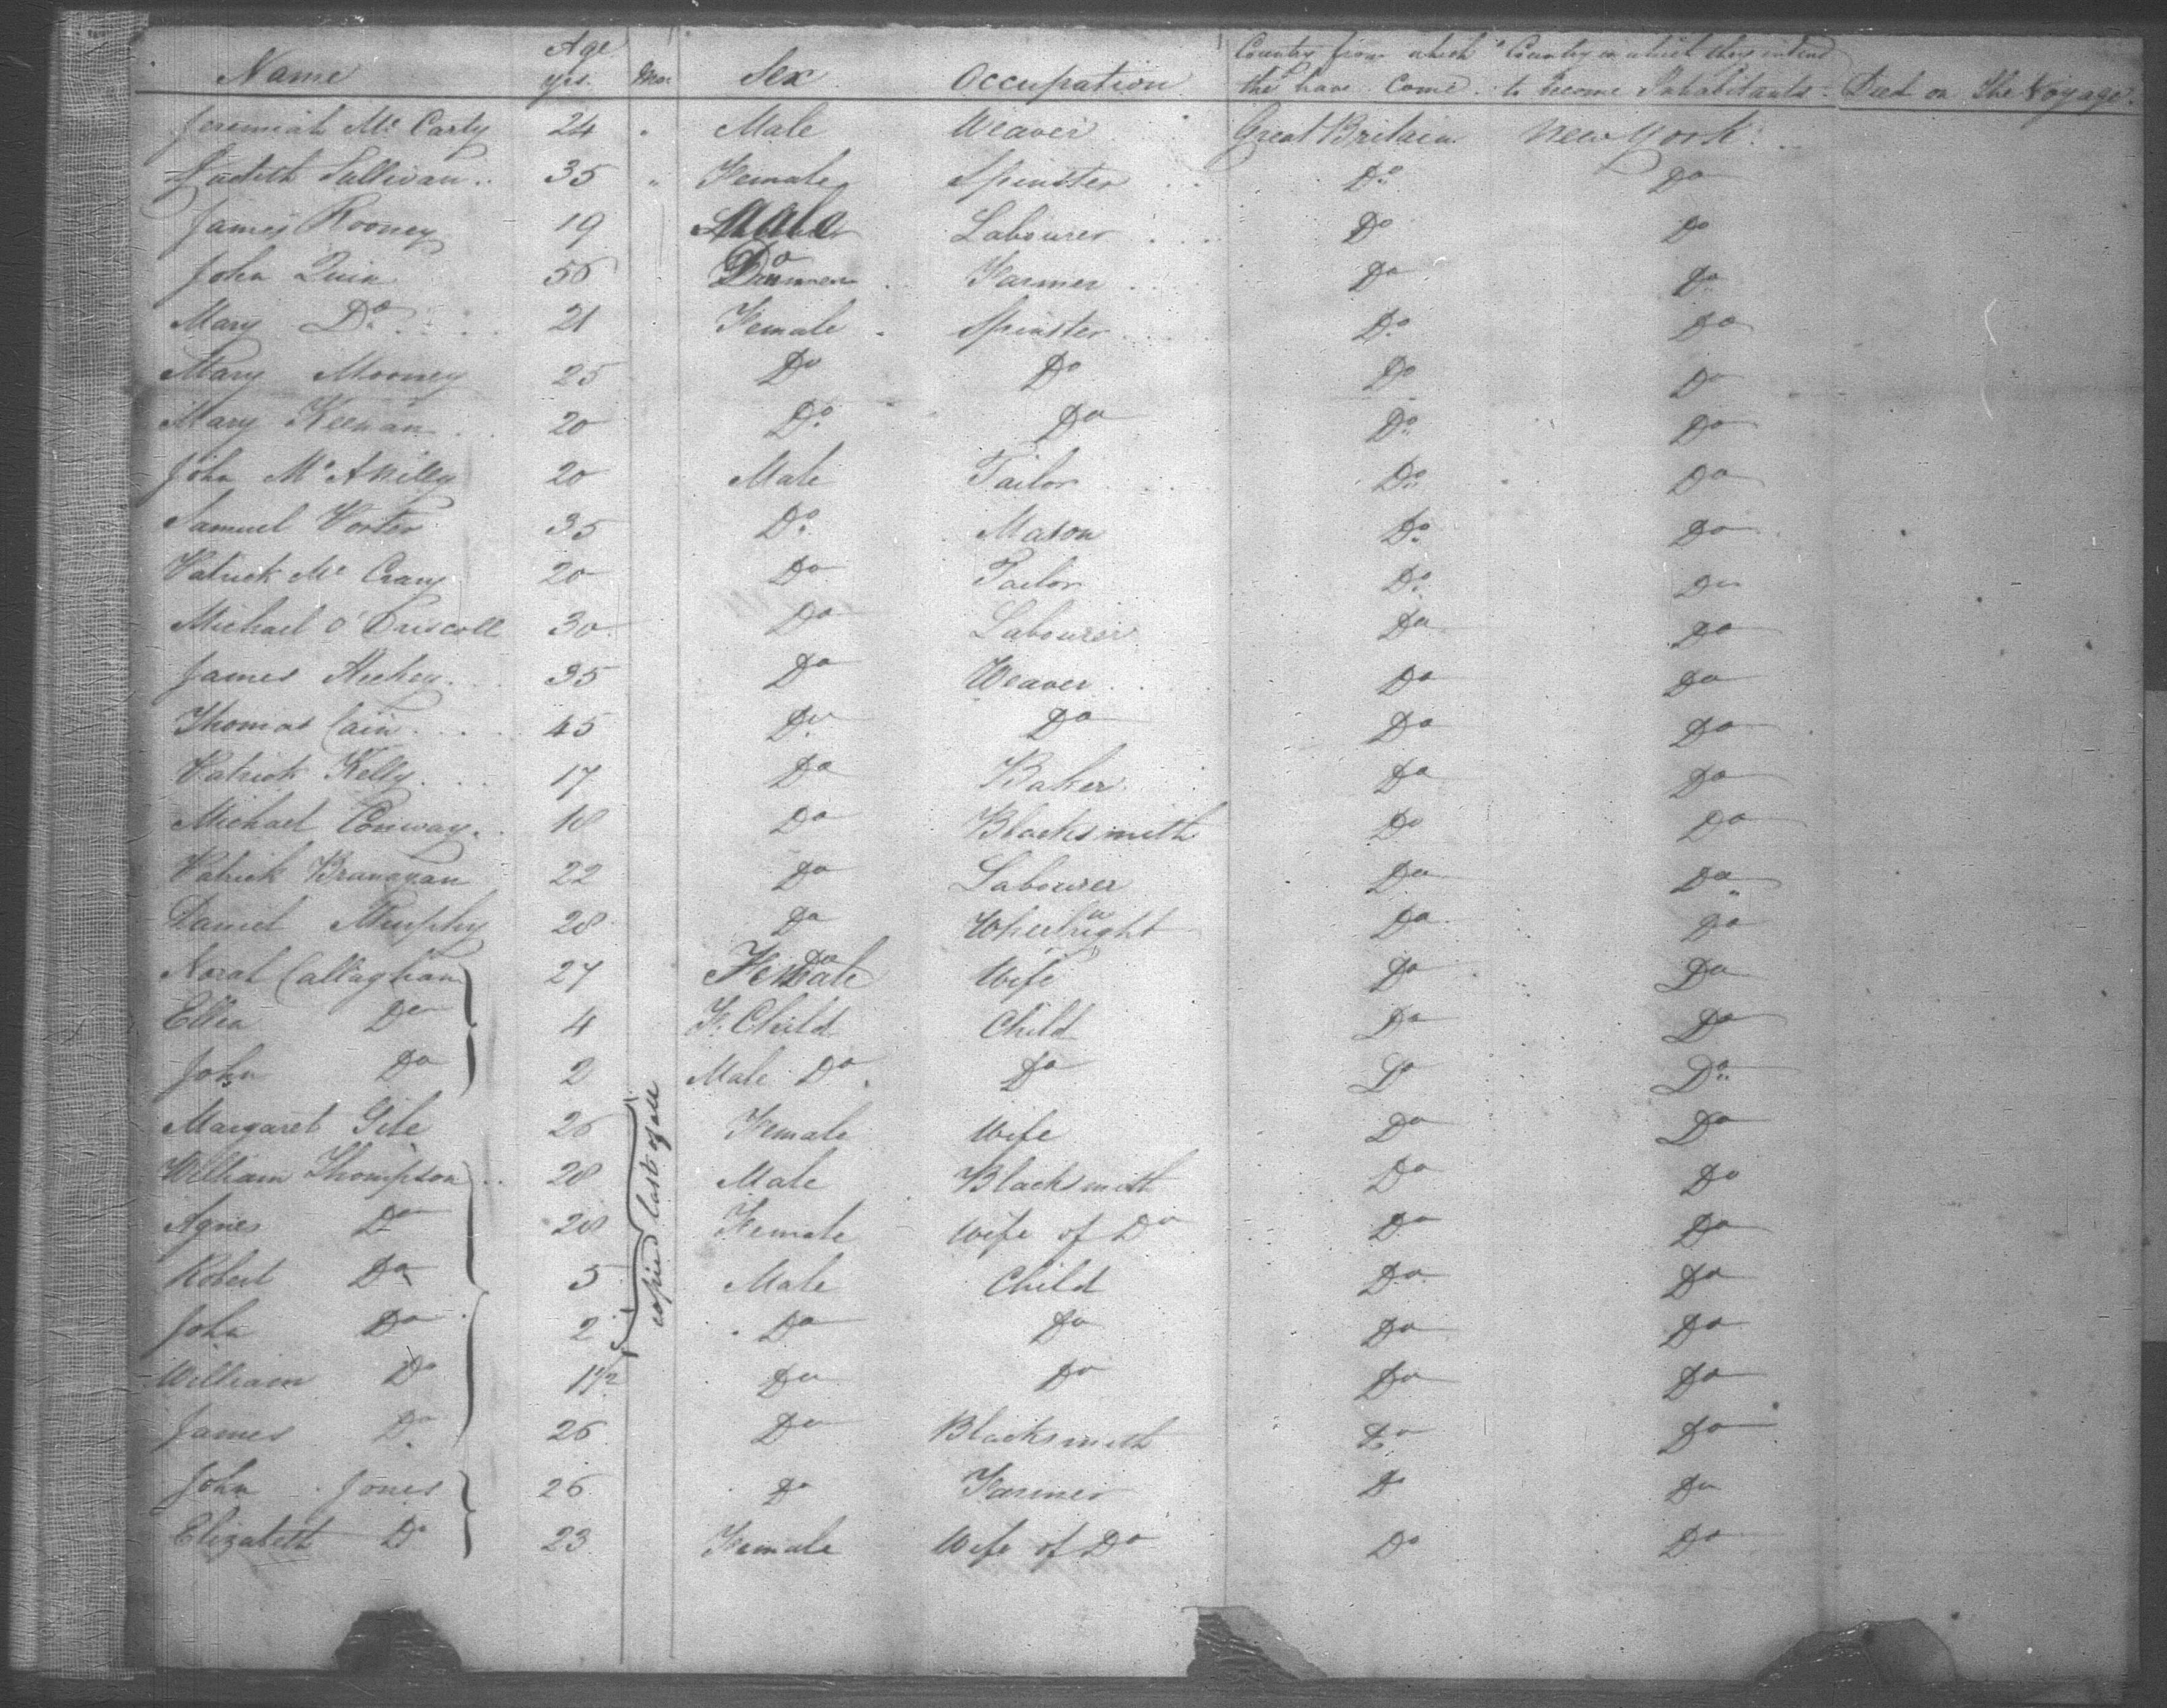 Name Age yrs. Mos Sex Occupation Country from which the have Come. Country in which they intend to become Inhabitants. Died on the Voyage.
Jeremiah Mc Carty 24 " Male Weaver Great Britain. New York.
Judith Sullivan 35 " Female Spinster Do Do
James Rooney 19 Male Labourer Do Do
John Quin 56 Do Farmer Do Do
Mary Do 21 Female Spinster Do Do
Mary Mooney 25 Do Do Do Do
Mary Keenan 20 Do Do Do Do
John Mc Anilly 20 Male Tailor Do Do
Samuel Porter 35 Do Mason Do Do
Patrick Mc Crary 20 Do Tailor Do Do
Michael O'Driscoll 30 Do Labourer Do Do
James Hickey 35 Do Weaver Do Do
Thomas Cain 45 Do Do Do Do
Patrick Kelly 17 Do Baker Do Do
Michael Conway 18 Do Blacksmith Do Do
Patrick Branagan 22 Do Labourer Do Do
Daniel Murphy 28 Do Wheelwright Do Do
Norah Callaghan 27 Female Wife Do Do
Ellen Do 4 F. Child Child Do Do
John Do 2 Male Do Do Do Do
Margaret Gile 26 Female Wife Do Do
William Thompson 28 Male Blacksmith Do Do
Agnes Do 28 Female Wife of Do Do Do
Robert Do 5 Male Child Do Do
John Do 2 Do Do Do Do
William Do 1 1/2 Do Do Do Do
James Do 26 Do Blacksmith Do Do
John Jones 26 Do Farmer Do Do
Elizabeth Do 23 Female Wife of Do Do Do
copied last of all